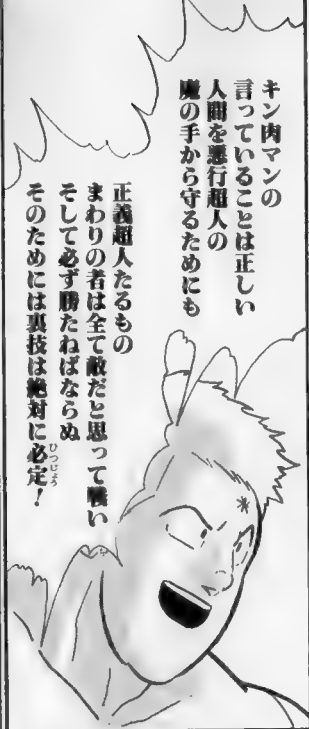 キン肉マンの
言っていることは正しい
人間を悪行超人の
魔の手から守るためにも
正義超人たるもの
まわりの者は全て敵だと思って戦い
そして必ず勝たねばならぬ
そのためには裏技は絶対に必定！
ひつじょう